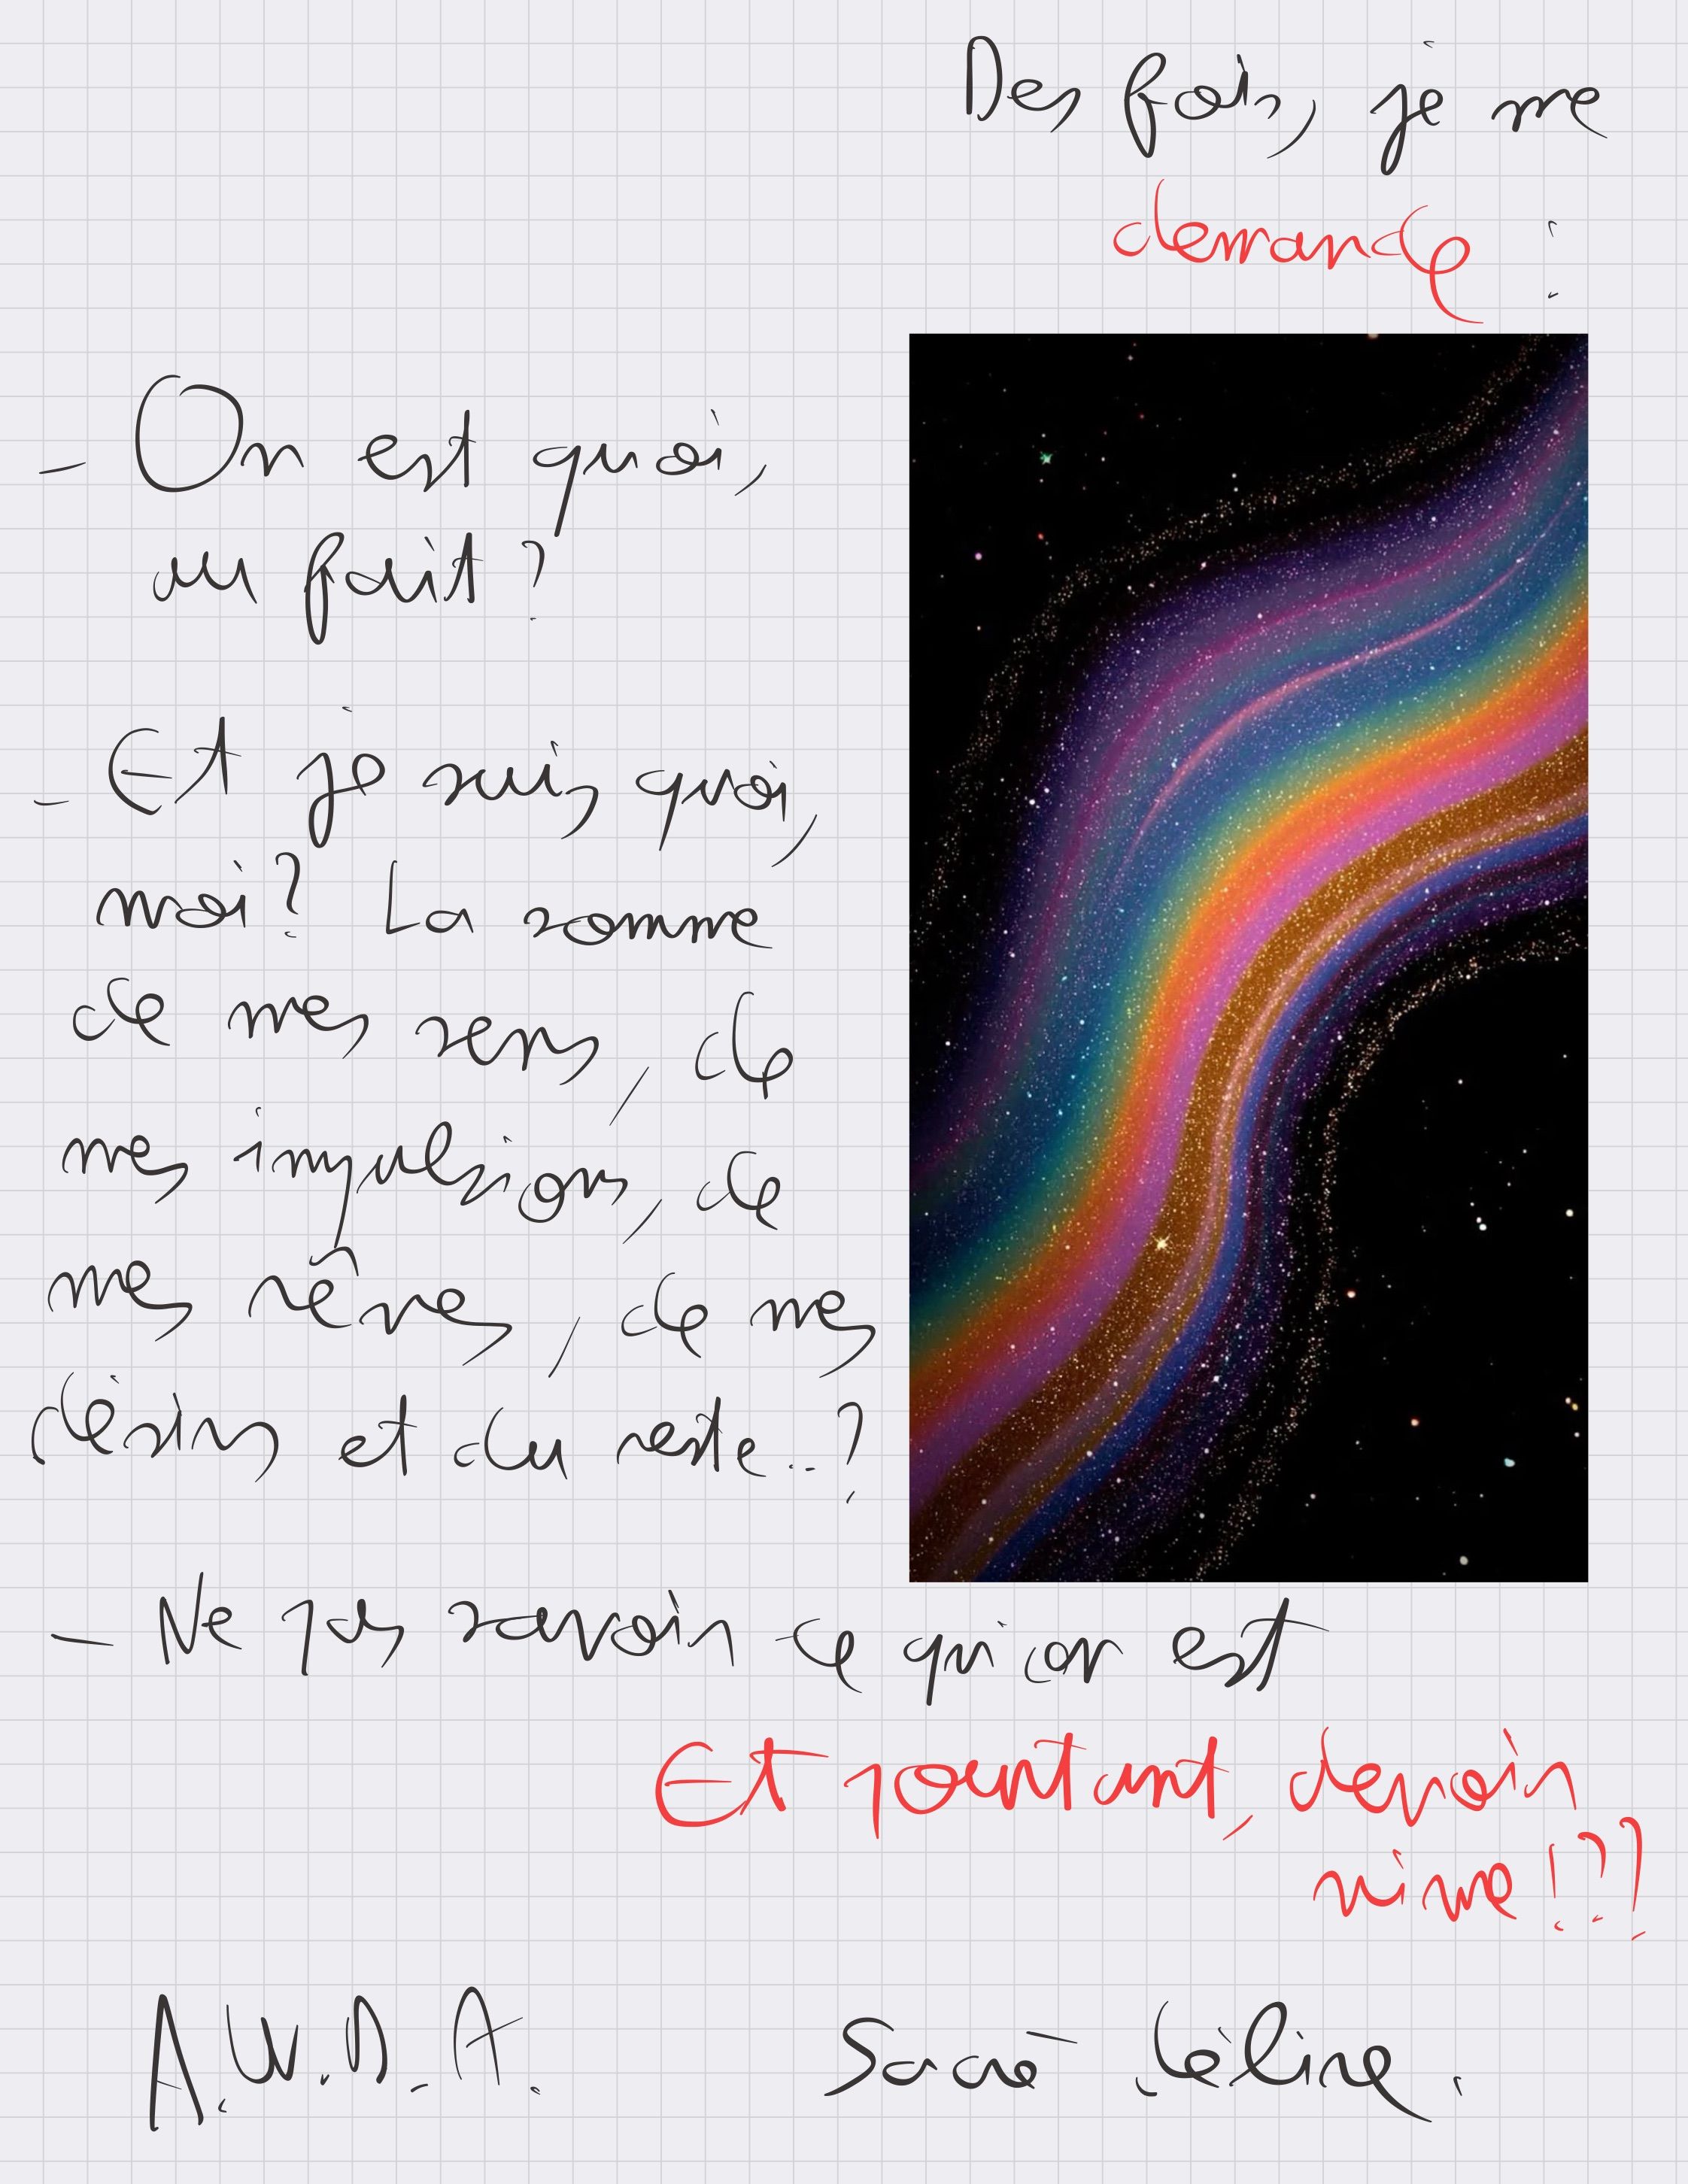 Des fois, je me
demande :
- On est quoi,
au fait ?
- Et je suis quoi,
moi ? La somme
de mes sens, de
mes impulsions, de
mes rêves, de mes
désirs et du reste...?
- Ne pas savoir ce qu'on est
Et pourtant, devoir
vivre !?!
A.W.D.A.
Sacré Céline.